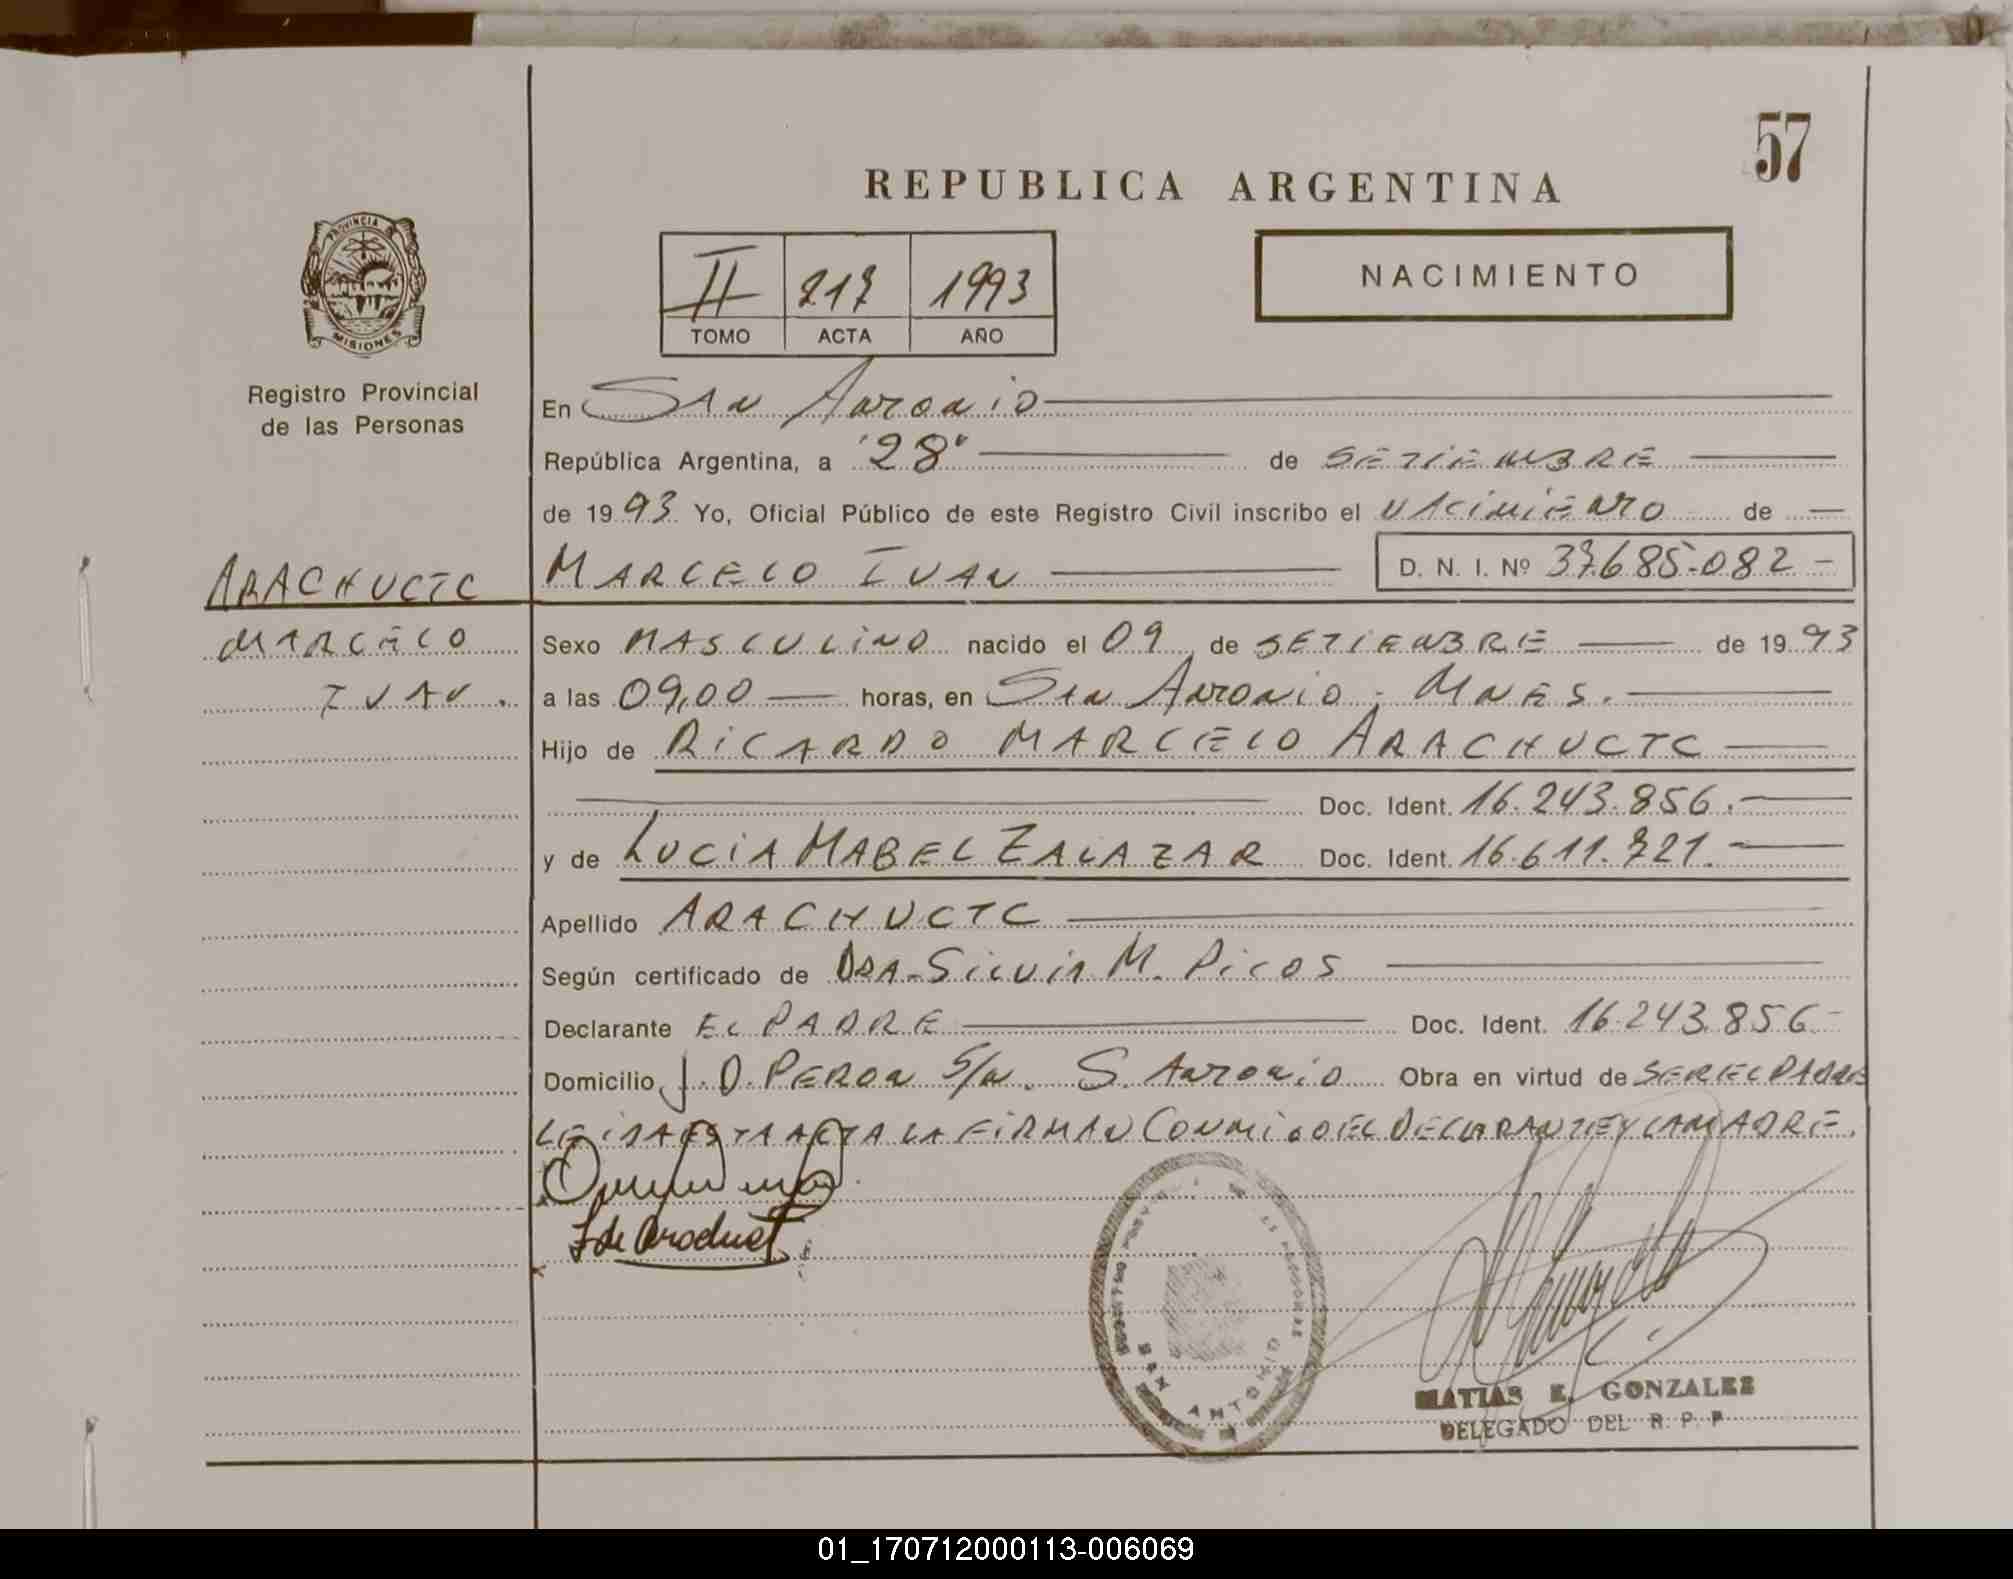 57
REPUBLICA ARGENTINA
PROVINCIA DE
MISIONES
Registro Provincial
de las Personas
II 217 1993
TOMO ACTA AÑO
NACIMIENTO
En San Antonio
República Argentina, a "28" de SETIEMBRE
de 1993 Yo, Oficial Público de este Registro Civil inscribo el NACIMIENTO de
ARACHUCTC MARCELO IVAN D. N. I. Nº 37.685.082
MARCELO Sexo MASCULINO nacido el 09 de SETIEMBRE de 1993
IVAN. a las 09,00 horas, en San Antonio - MNES.
Hijo de RICARDO MARCELO ARACHUCTC
Doc. Ident. 16.243.856.
y de LUCIA MABEL ZALAZAR Doc. Ident. 16.611.721.
Apellido ARACHUCTC
Según certificado de DRA. SILVIA M. PICOS
Declarante EL PADRE Doc. Ident. 16.243.856
Domicilio J. D. PERON S/N. S. Antonio Obra en virtud de SER EL PADRE
LEIDA ESTA ACTA LA FIRMAN CONMIGO EL DECLARANTE Y LA MADRE.
SAN ANTONIO
MATIAS E. GONZALEZ
DELEGADO DEL R. P. P.
01_170712000113-006069